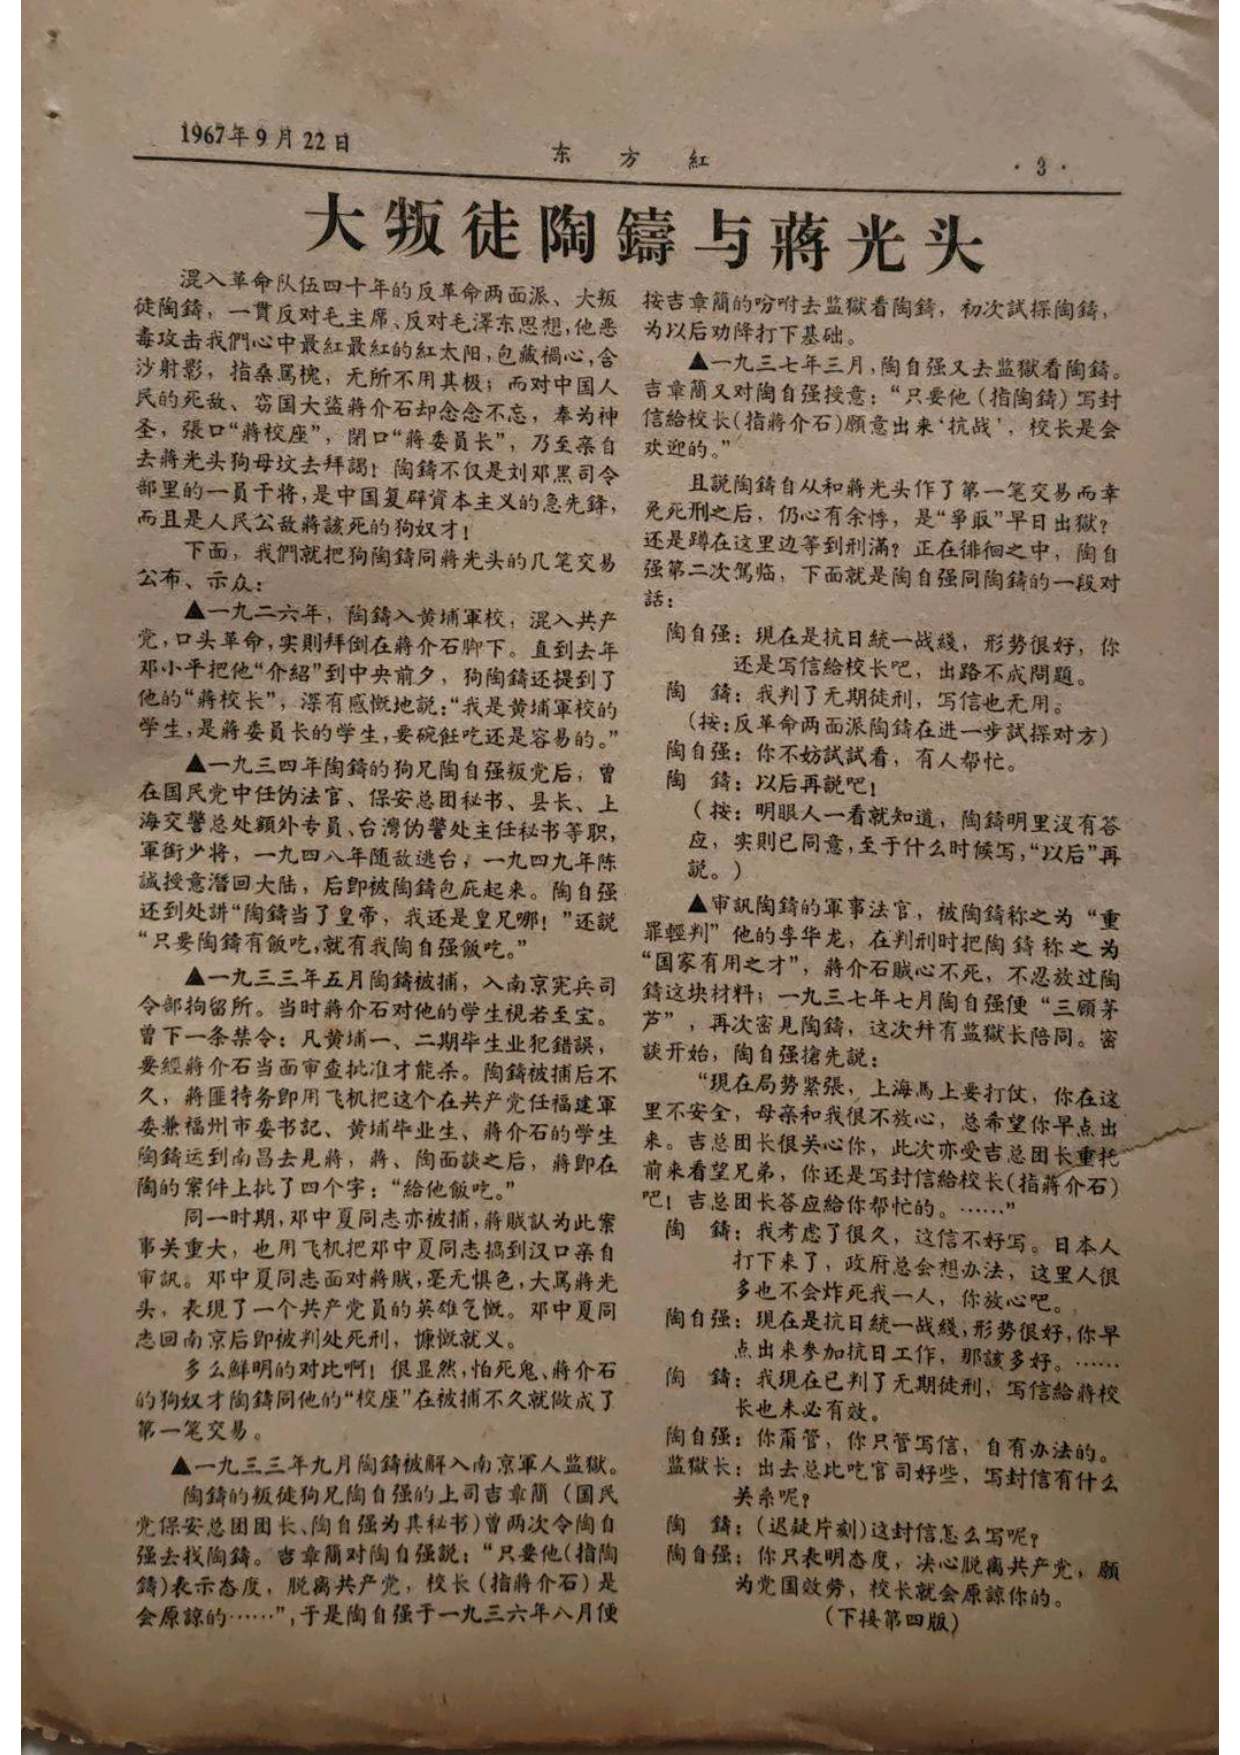 1967年9月22日
东 方 紅
·3·
大叛徒陶鑄与蔣光头
混入革命队伍四十年的反革命两面派、大叛
徒陶鑄，一貫反对毛主席、反对毛澤东思想，他恶
毒攻击我們心中最紅最紅的紅太阳，包藏禍心，含
沙射影，指桑駡槐，无所不用其极；而对中国人
民的死敌、窃国大盜蔣介石却念念不忘，奉为神
圣，張口“蔣校座”，閉口“蔣委員长”，乃至亲自
去蔣光头狗母坟去拜謁！陶鑄不仅是刘邓黑司令
部里的一員干将，是中国复辟資本主义的急先鋒，
而且是人民公敌蔣該死的狗奴才！
下面，我們就把狗陶鑄同蔣光头的几笔交易
公布、示众：
▲一九二六年，陶鑄入黄埔軍校，混入共产
党，口头革命，实則拜倒在蔣介石脚下。直到去年
邓小平把他“介紹”到中央前夕，狗陶鑄还提到了
他的“蔣校长”，深有感慨地説：“我是黄埔軍校的
学生，是蔣委員长的学生，要碗飪吃还是容易的。”
▲一九三四年陶鑄的狗兄陶自强叛党后，曾
在国民党中任伪法官、保安总团秘书、县长、上
海交警总处额外专員、台灣伪警处主任秘书等职，
軍銜少将，一九四八年随敌逃台，一九四九年陈
誠授意潛回大陆，后卽被陶鑄包庇起来。陶自强
还到处讲“陶鑄当了皇帝，我还是皇兄哪！”还説
“只要陶鑄有飯吃，就有我陶自强飯吃。”
▲一九三三年五月陶鑄被捕，入南京宪兵司
令部拘留所。当时蔣介石对他的学生視若至宝。
曾下一条禁令：凡黄埔一、二期毕生业犯錯誤，
要經蔣介石当面审查批准才能杀。陶鑄被捕后不
久，蔣匪特务卽用飞机把这个在共产党任福建軍
委兼福州市委书記、黄埔毕业生、蔣介石的学生
陶鑄运到南昌去見蔣，蔣、陶面談之后，蔣卽在
陶的案件上批了四个字：“給他飯吃。”
同一时期，邓中夏同志亦被捕，蔣賊訦为此案
事关重大，也用飞机把邓中夏同志搞到汉口亲自
审訊。邓中夏同志面对蔣賊，毫无惧色，大駡蔣光
头，表現了一个共产党員的英雄气慨。邓中夏同
志回南京后卽被判处死刑，慷慨就义。
多么鮮明的对比啊！很显然，怕死鬼、蔣介石
的狗奴才陶鑄同他的“校座”在被捕不久就做成了
第一笔交易。
▲一九三三年九月陶鑄被解入南京軍人监獄。
陶鑄的叛徒狗兄陶自强的上司吉章簡（国民
党保安总团团长、陶自强为其秘书）曾两次令陶自
强去找陶鑄。吉章簡对陶自强説：“只要他（指陶
鑄）表示态度，脫离共产党，校长（指蔣介石）是
会原諒的……”，于是陶自强于一九三六年八月便
按吉章簡的吩咐去监獄看陶鑄，初次試探陶鑄，
为以后劝降打下基础。
▲一九三七年三月，陶自强又去监獄看陶鑄。
吉章簡又对陶自强授意：“只要他（指陶鑄）写封
信給校长（指蔣介石）願意出来‘抗战’，校长是会
欢迎的。”
且説陶鑄自从和蔣光头作了第一笔交易而幸
免死刑之后，仍心有余悸，是“爭取”早日出獄？
还是蹲在这里边等到刑滿？正在徘徊之中，陶自
强第二次駕临，下面就是陶自强同陶鑄的一段对
話：
陶自强：現在是抗日統一战綫，形势很好，你
还是写信給校长吧，出路不成問題。
陶　鑄：我判了无期徒刑，写信也无用。
（按：反革命两面派陶鑄在进一步試探对方）
陶自强：你不妨試試看，有人帮忙。
陶　鑄：以后再説吧！
（按：明眼人一看就知道，陶鑄明里沒有答
应，实則已同意，至于什么时候写，“以后”再
説。）
▲审訊陶鑄的軍事法官，被陶鑄称之为“重
罪輕判”他的李华龙，在判刑时把陶鑄称之为
“国家有用之才”，蔣介石賊心不死，不忍放过陶
鑄这块材料；一九三七年七月陶自强便“三顾茅
芦”，再次密見陶鑄，这次幷有监獄长陪同。密
談开始，陶自强搶先説：
“現在局势紧張，上海馬上要打仗，你在这
里不安全，母亲和我很不放心，总希望你早点出
来。吉总团长很关心你，此次亦受吉总团长重托
前来看望兄弟，你还是写封信給校长（指蔣介石）
吧！吉总团长答应給你帮忙的。……”
陶　鑄：我考虑了很久，这信不好写。日本人
打下来了，政府总会想办法，这里人很
多也不会炸死我一人，你放心吧。
陶自强：現在是抗日統一战綫，形势很好，你早
点出来参加抗日工作，那該多好。……
陶　鑄：我現在已判了无期徒刑，写信給蔣校
长也未必有效。
陶自强：你甭管，你只管写信，自有办法的。
监獄长：出去总比吃官司好些，写封信有什么
关系呢？
陶　鑄：（迟疑片刻）这封信怎么写呢？
陶自强：你只表明态度，决心脫离共产党，願
为党国效劳，校长就会原諒你的。
（下接第四版）